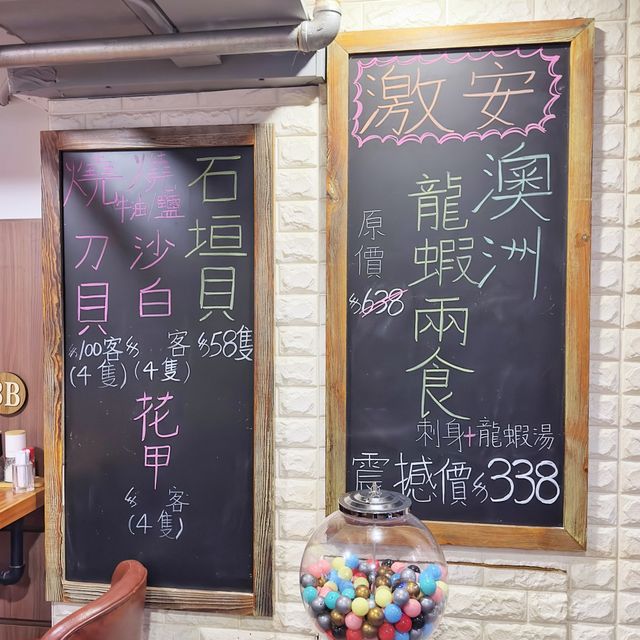 石垣貝
$58隻
燒牛油鹽
沙白
$ 客
(4隻)
燒
刀貝
$100客
(4隻)
花甲
$ 客
(4隻)
激安
澳洲
龍蝦兩食
原價
$638
刺身+龍蝦湯
震撼價$338
3B